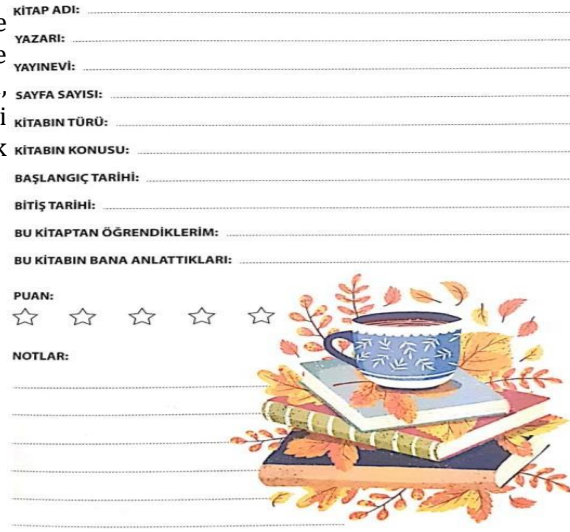 KİTAP ADI:
YAZARI:
YAYINEVİ:
SAYFA SAYISI:
KİTABIN TÜRÜ:
KİTABIN KONUSU:
BAŞLANGIÇ TARİHİ:
BİTİŞ TARİHİ:
BU KİTAPTAN ÖĞRENDİKLERİM:
BU KİTABIN BANA ANLATTIKLARI:
PUAN:
NOTLAR: